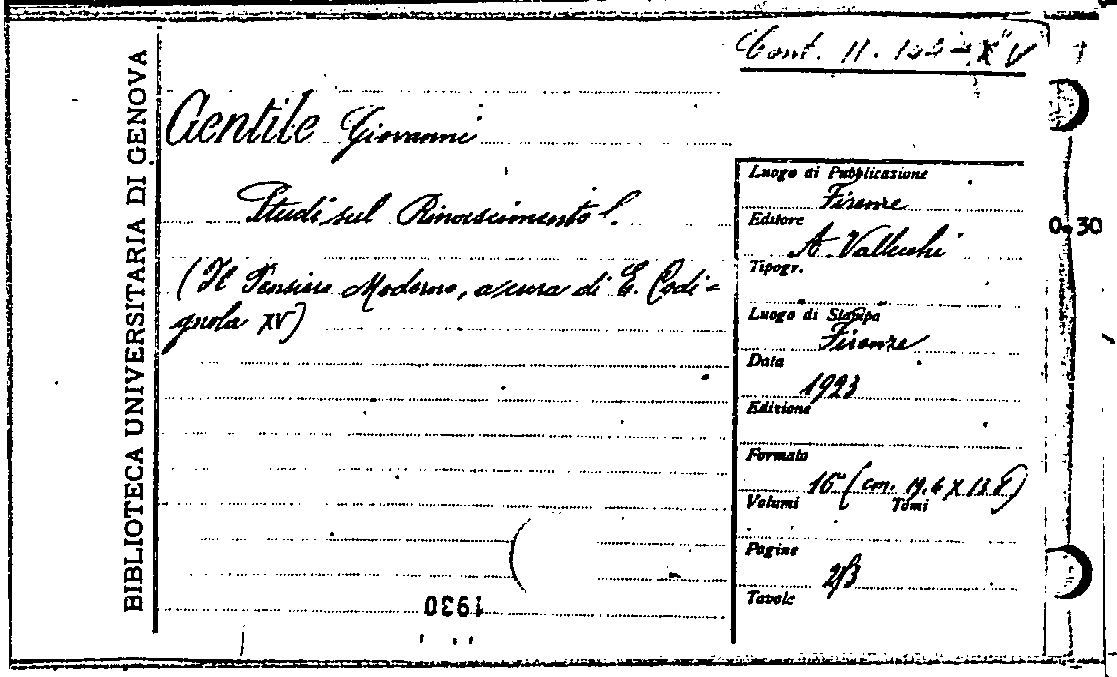 BIBLIOTECA UNIVERSITARIA DI GENOVA
Cont. 11. XV
Gentile Giovanni
Studi sul Rinascimento
(Il Pensiero Moderno, a cura di E. Codi-
gnola XV)
1930
Luogo di Pubblicazione
Firenze
Editore
A. Vallecchi
Tipogr.
Luogo di Stampa
Firenze
Data
1923
Edizione
Formato
16° (cm. 19.6 X 13.8)
Volumi Tomi
Pagine
Tavole
0.30